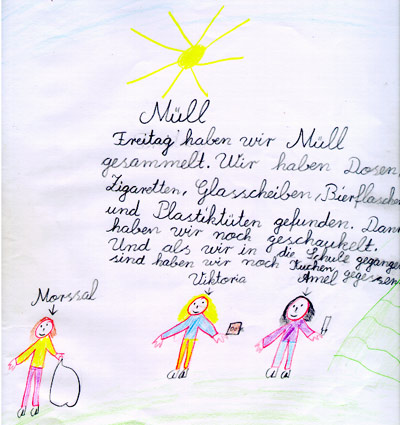 Müll
Freitag haben wir Müll
gesammelt. Wir haben Dosen,
Zigaretten, Glasscheiben, Bierflaschen
und Plastiktüten gefunden. Dann
haben wir noch geschaukelt.
Und als wir in die Schule gegangen
sind haben wir noch Kuchen gegessen.
Morssal
Viktoria
Amel